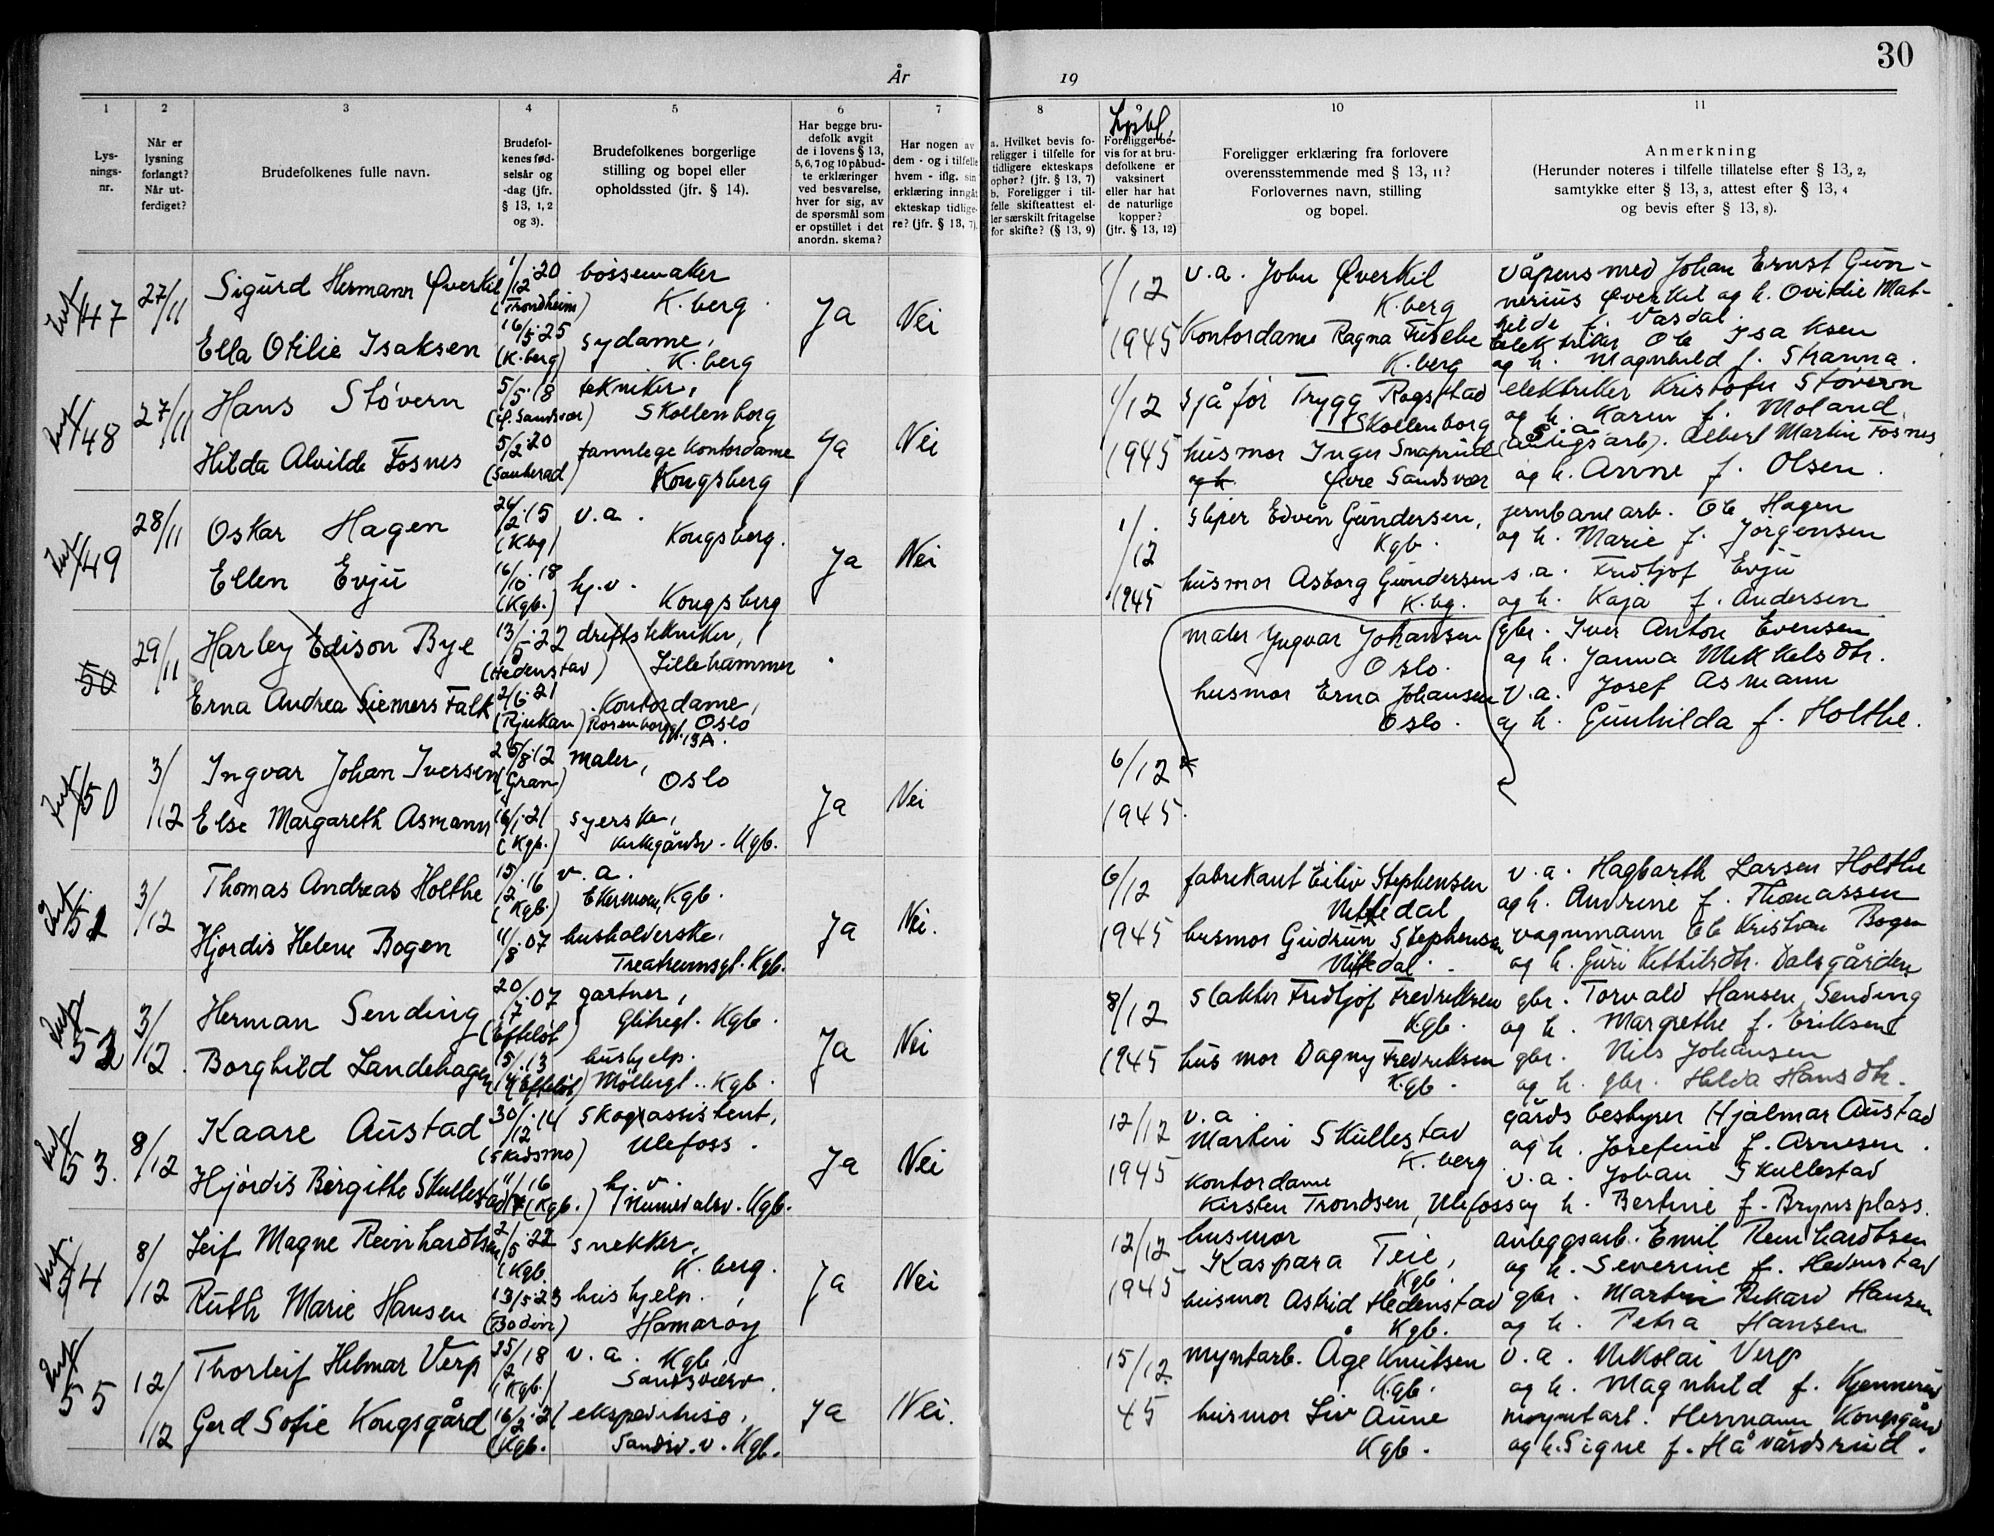 30
År
19
1
2
3
4
5
6
7
8
10
11
Lysbl.
Lys-
nings-
nr.
Når er
lysning
forlangt?
Når ut-
ferdiget?
Brudefolkenes fulle navn.
Brudefol-
kenes fød-
selsår og
-dag (jfr.
§ 13, 1, 2
og 3).
Brudefolkenes borgerlige
stilling og bopel eller
opholdssted (jfr. § 14).
Har begge bru-
defolk avgit
de i lovens § 13,
5, 6, 7 og 10 påbud-
te erklæringer
ved besvarelse,
hver for sig, av
de spørsmål som
er opstillet i det
anordn. skema?
Har nogen av
dem - og i tilfelle
hvem - iflg. sin
erklæring inngåt
ekteskap tidlige-
re? (jfr. § 13, 7).
a. Hvilket bevis fo-
religger i tilfelle for
tidligere ekteskaps
ophør? (jfr. § 13, 7)
b. Foreligger i til-
felle skifteattest el-
ler særskilt fritagelse
for skifte? (§ 13, 9)
Foreligger be-
vis for at bru-
defolkene er
vaksinert
eller har hat
de naturlige
kopper?
(jfr. § 13, 12)
Foreligger erklæring fra forlovere
overensstemmende med § 13, 11?
Forlovernes navn, stilling
og bopel.
Anmerkning
(Herunder noteres i tilfelle tillatelse efter § 13, 2,
samtykke efter § 13, 3, attest efter § 13, 4
og bevis efter § 13, 8).
47 27/11 Sigurd Hermann Øverkil 1/12.20 bøssemaker
(Trondheim) K.berg. Ja Nei
Ella Otilie Isaksen 16/5.25 sydame,
(K.berg) K.berg
1/12 v.a. John Øverkil
K.berg
1945 Kontordame Ragna
K.berg
våpensmed Johan Ernst Gun-
nerius Øverkil og h. Ovidie Mat-
hilde f. Vasdal.
Elektriker Ole Isaksen
og h. Magnhild f. Stranna.
48 27/11 Hans Støvern 5/5.18 tekniker,
(Ø. Sandsvær) Skollenborg Ja Nei
Hilda Alvilde Fosnes 5/2.20 tannlege kontordame
(Sauherad) Kongsberg
1/12 sjåfør Trygg Rogstad
Skollenborg
1945 husmor Inger Snaprud
og h. Øvre Sandsvær
elektriker Kristofer Støvern
og h. Karen f. Moland.
s.a.
(anlegsarb). Albert Martin Fosnes
og h. Anne f. Olsen.
49 28/11 Oskar Hagen 24/2.15 v.a.
(Kbg) Kongsberg. Ja Nei
Ellen Evju 16/10.18 hj.v.
(Kgb.) Kongsberg
1/12 sliper Edvin Gundersen,
Kgb.
1945 husmor Asborg Gundersen
K.bg.
jernbanearb. Ole Hagen
og h. Marie f. Jörgensen
s.a. Fridtjof Evju
og h. Kaja f. Andersen
50 29/11 Harley Edison Bye 13/5.22 driftstekniker,
(Hedenstad) Lillehammer
Erna Andrea Siemers Falk 2/6.21 Kontordame,
(Rjukan) Rosenborggt. Oslo
13A.
maler Yngvar Johansen
Oslo.
husmor Erna Johansen
Oslo.
gbr. Iver Anton Evensen
og h. Janna Mikkelsdtr.
v.a. Josef Asmann
og h. Gunhilda f. Holthe.
50 3/12 Ingvar Johan Iversen 25/8.12 maler,
(Gran) Oslo Ja Nei
Else Margareth Asmann 16/1.21 syerske,
(Kgb.) Kirkegårdsv. Kgb.
6/12
1945.
51 3/12 Thomas Andreas Holthe 15/12.16 v.a.
(Kgb.) Kgb. Ja Nei.
Hjördis Helene Bogen 11/8.07 husholderske,
Kgb.
6/12 fabrikant Eiliv Stephensen
Nittedal
1945 husmor Gudrun Stephensen
Nittedal.
v.a. Hagbarth Larsen Holthe
og h. Andrine f. Thomassen
vognmann Ole Kristian Bogen
og h. Guri Kittilsdtr. Dalsgården
52 3/12. Herman Sending 20/7.07 gartner,
(Efteløt) Glitregt. Kgb. Ja Nei
Borghild Landehagen 15/4.13 hushjelp.
(Efteløt) Møllergt.. Kgb.
8/12 slakter Fridtjof Fredriksen
Kgb.
1945 husmor Dagny Fredriksen
Kgb.
gbr. Torvald Hansen Sending
og h. Margrethe f. Eriksen
gbr. Nils Johansen
og h. gbr. Hilda Hansdtr.
53. 8/12 Kaare Austad 30/12.14 skogassistent,
(Skedsmo) Ulefoss. Ja Nei
Hjördis Birgitte Skullestad 16 hj.v.
(Kgb.) Numedalsv. Kgb.
12/12 v.a.
Martin Skullestad
K.berg
1945 kontordame
Kirsten Trondsen, Ulefoss
gårdsbestyrer Hjalmar Austad
og h. Josefine f. Arnesen.
v.a. Johan Skullestad
og h. Bertine f. Brynsplass.
54 8/12 Leif Magne Reinhardtsen 2/5.22 snekker,
(Kgb. K.berg. Ja Nei
Ruth Marie Hansen 13/5.23 hushjelp.
(Bodin) Hamarøy
12/12 husmor
Kaspara Teie,
Kgb.
1945 husmor Astrid Hedenstad
Kgb.
anleggsarb. Emil Reinhardtsen
og h. Severine f. Hedenstad
gbr. Martin Rikard Hansen
og h. Petra Hansen
55 12/12 Thorleif Hilmar Verp 25/2.18 v.a. Kgb,
(Kgb.) Sandsværv. Ja Nei.
Gerd Sofie Kongsgård 16/2.21 ekspeditrise,
(Kgb. Sandsv.v. Kgb.
15/12. myntarb. Åge Knutsen
Kgb.
45 husmor Liv Aune
Kgb.
v.a. Nikolai Verp
og h. Magnhild f. Kjennerud
myntarb. Hermann Kongsgård
og h. Signe f. Håvardsrud.